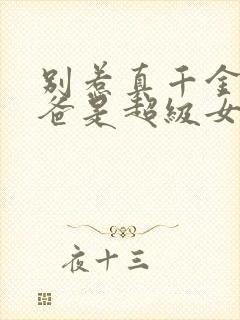 别惹真千金
爸是超级女
夜十三